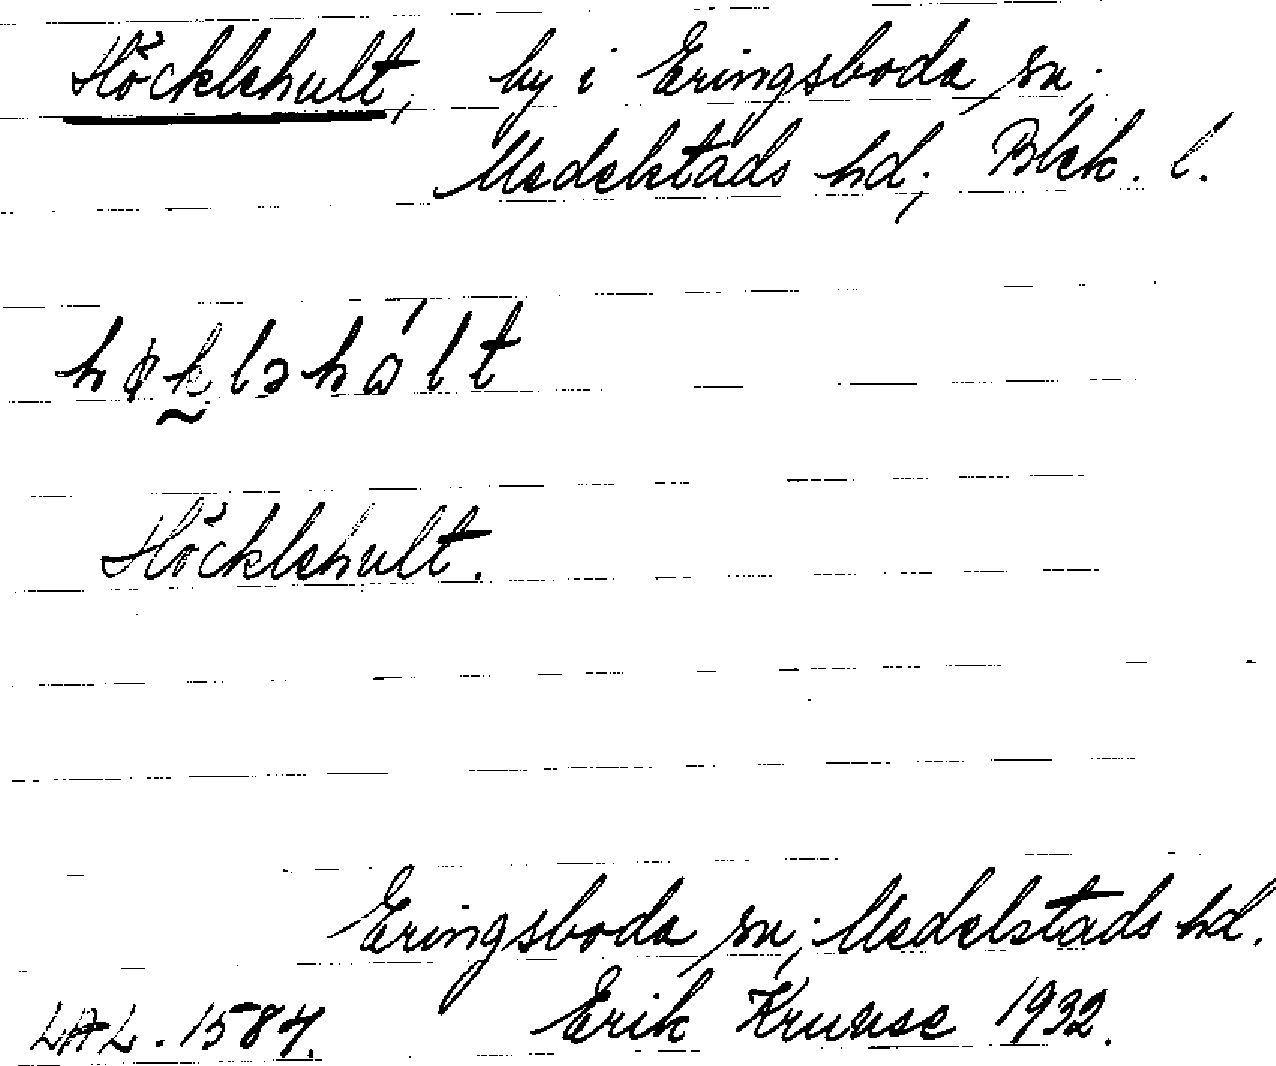 Höcklehult, by i Eringsboda sn,
Medelstads hd, Blek. l.
høkləhált
Höcklehult.
Eringsboda sn, Medelstads hd.
LAL. 1584. Erik Kruuse 1932.